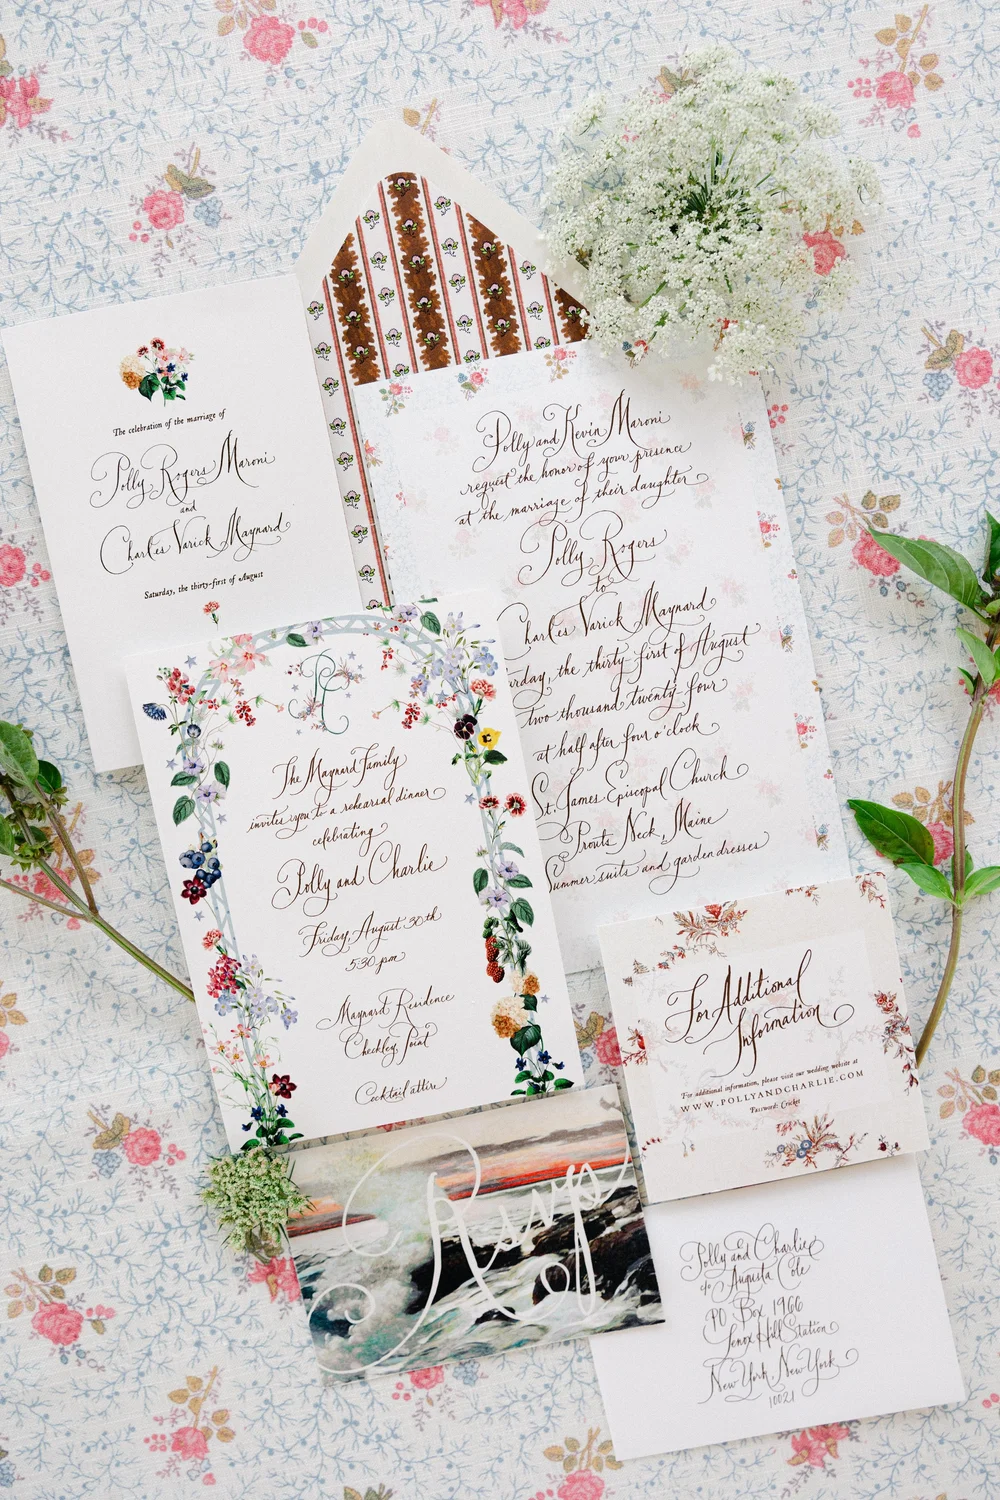 The celebration of the marriage of
Polly Rogers Maroni
and
Charles Varick Maynard
Saturday, the thirty-first of August
Polly and Kevin Maroni
request the honor of your presence
at the marriage of their daughter
Polly Rogers
to
Charles Varick Maynard
rday, the thirty-first of August
two thousand twenty-four
at half after four o'clock
St. James Episcopal Church
Prouts Neck, Maine
Summer suits and garden dresses
PC
The Maynard Family
invites you to a rehearsal dinner
celebrating
Polly and Charlie
Friday, August 30th
5:30 pm
Maynard Residence
Checkley Point
Cocktail attire
For Additional
Information
For additional information, please visit our wedding website at
WWW.POLLYANDCHARLIE.COM
Password: Cricket
Rsvp
Polly and Charlie
c/o Augusta Cole
PO Box 1966
Lenox Hill Station
New York, New York
10021